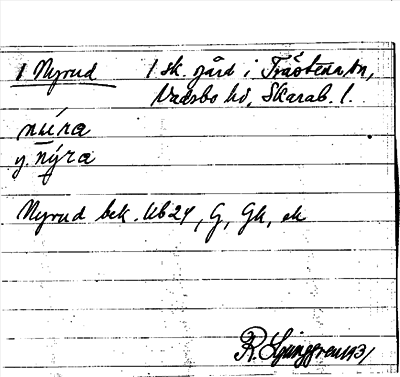 1 Nyrud 1 sk. gård i Trästena sn,
Vadsbo hd, Skarab. l.
núra
y. nýra
Nyrud bek. Ub24, G, Gk, ek
R. Ljunggren 1931